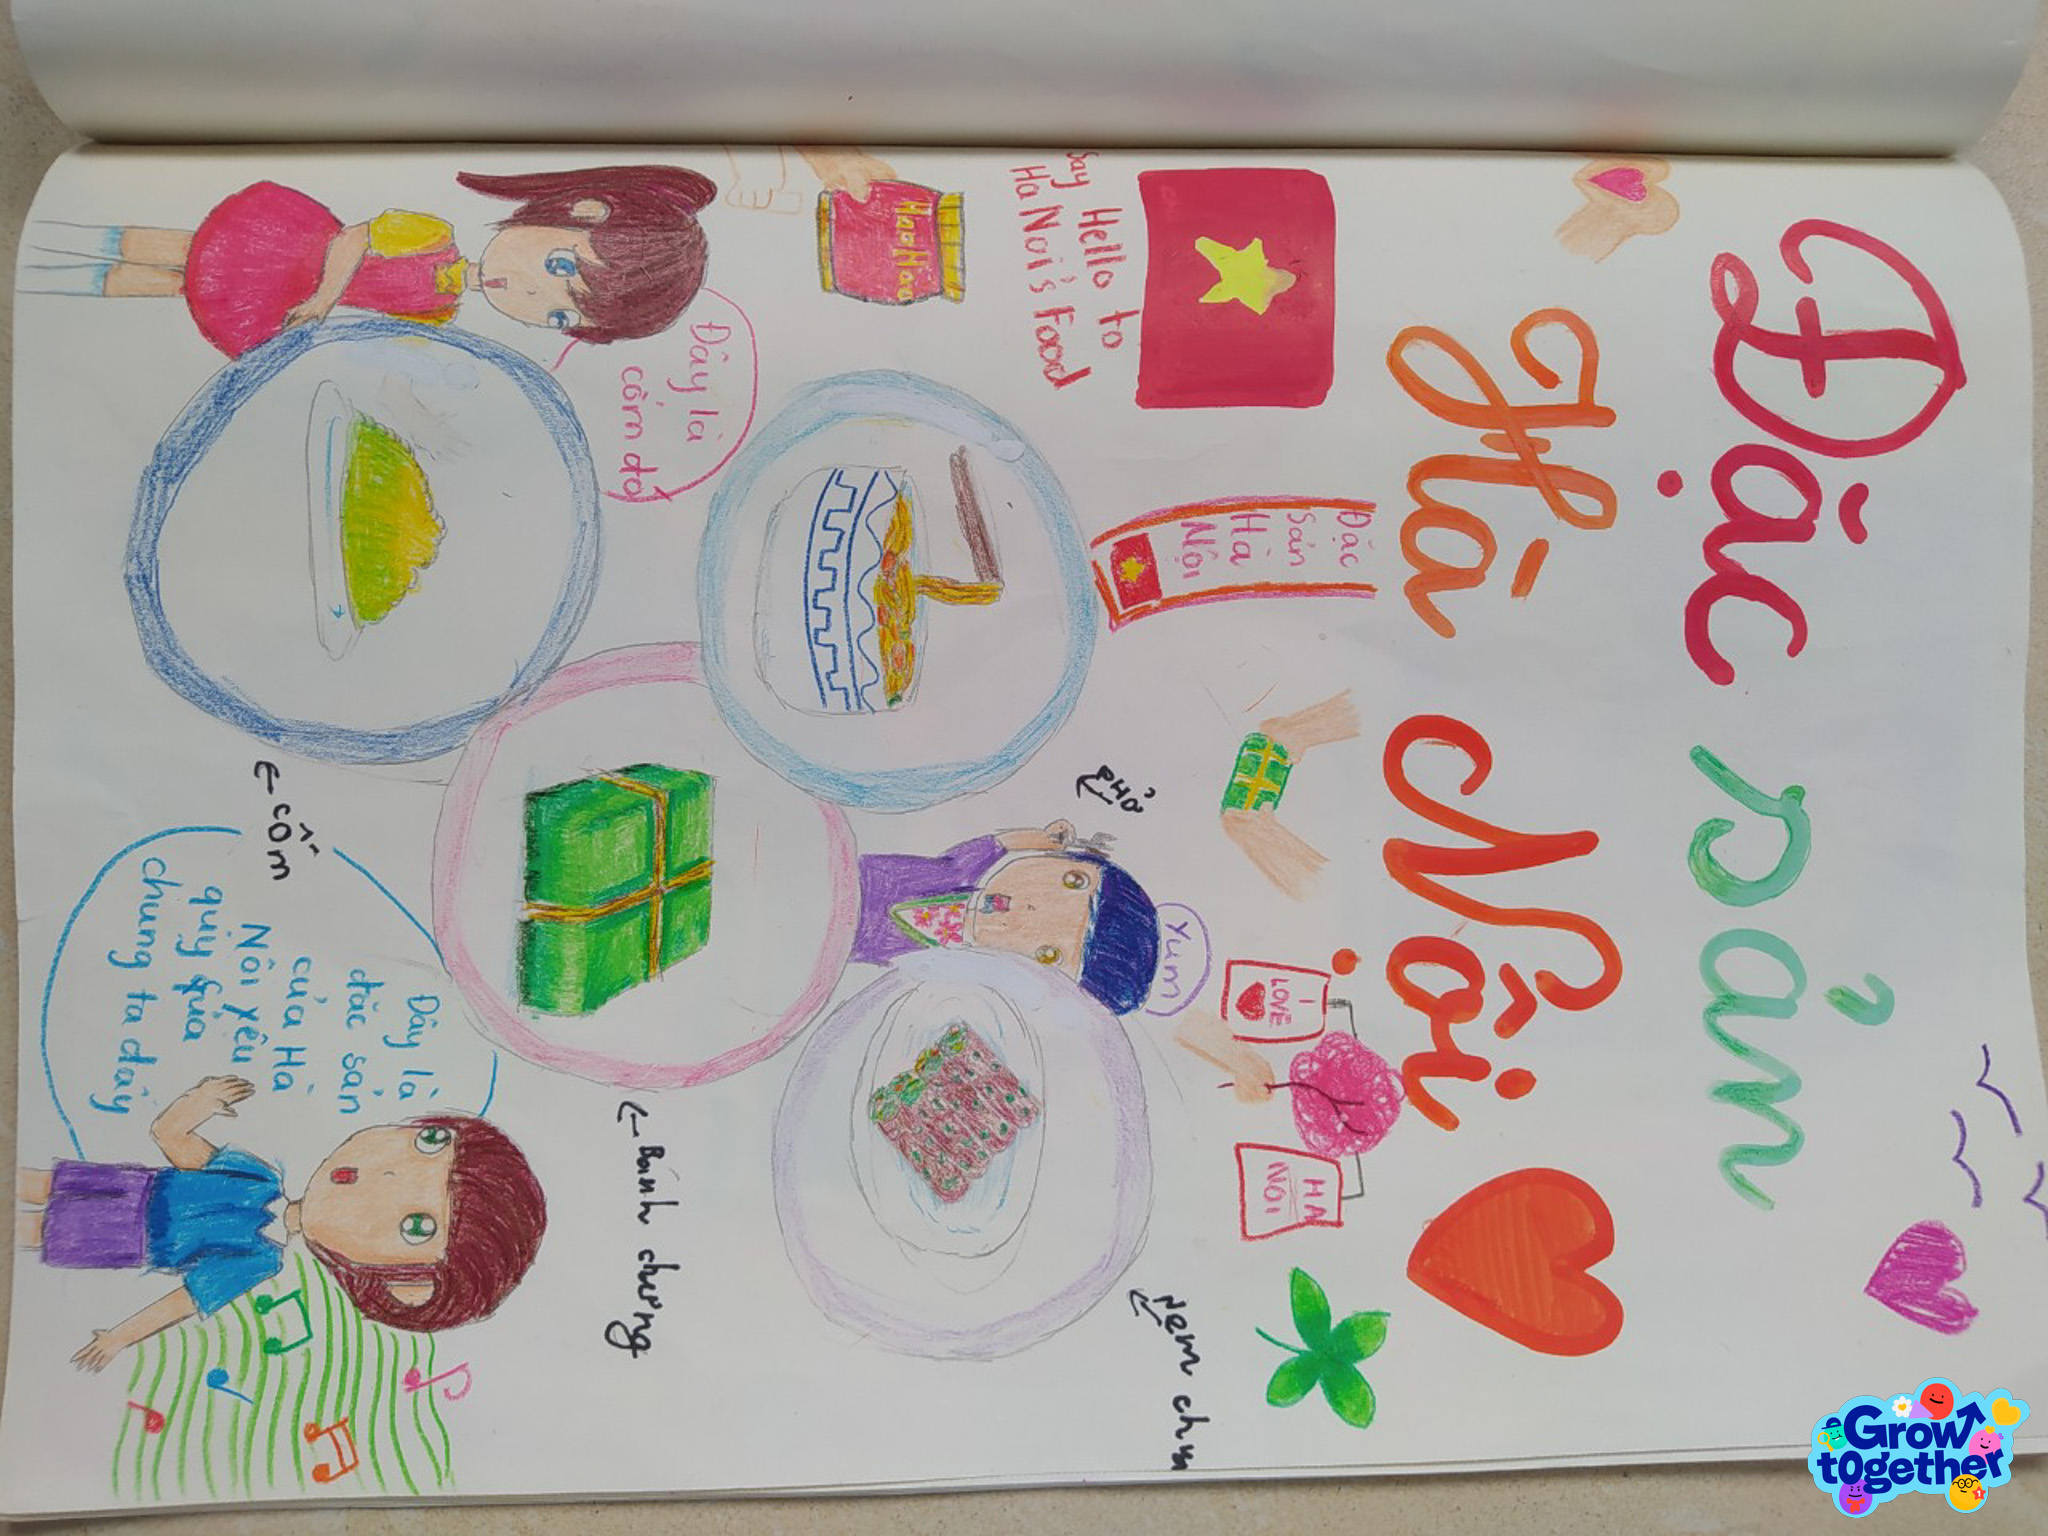 Đặc sản
Hà Nội
Say Hello to
Ha Noi's Food
Đặc
Sản
Hà
Nội
I
LOVE
HA
NOI
Hao Hao
Yum
PHở
Nem chua
Đây là
cốm đó
Bánh chưng
cốm
Đây là
đặc sản
của Hà
Nôi yêu
quý của
chung ta đấy
Grow
together